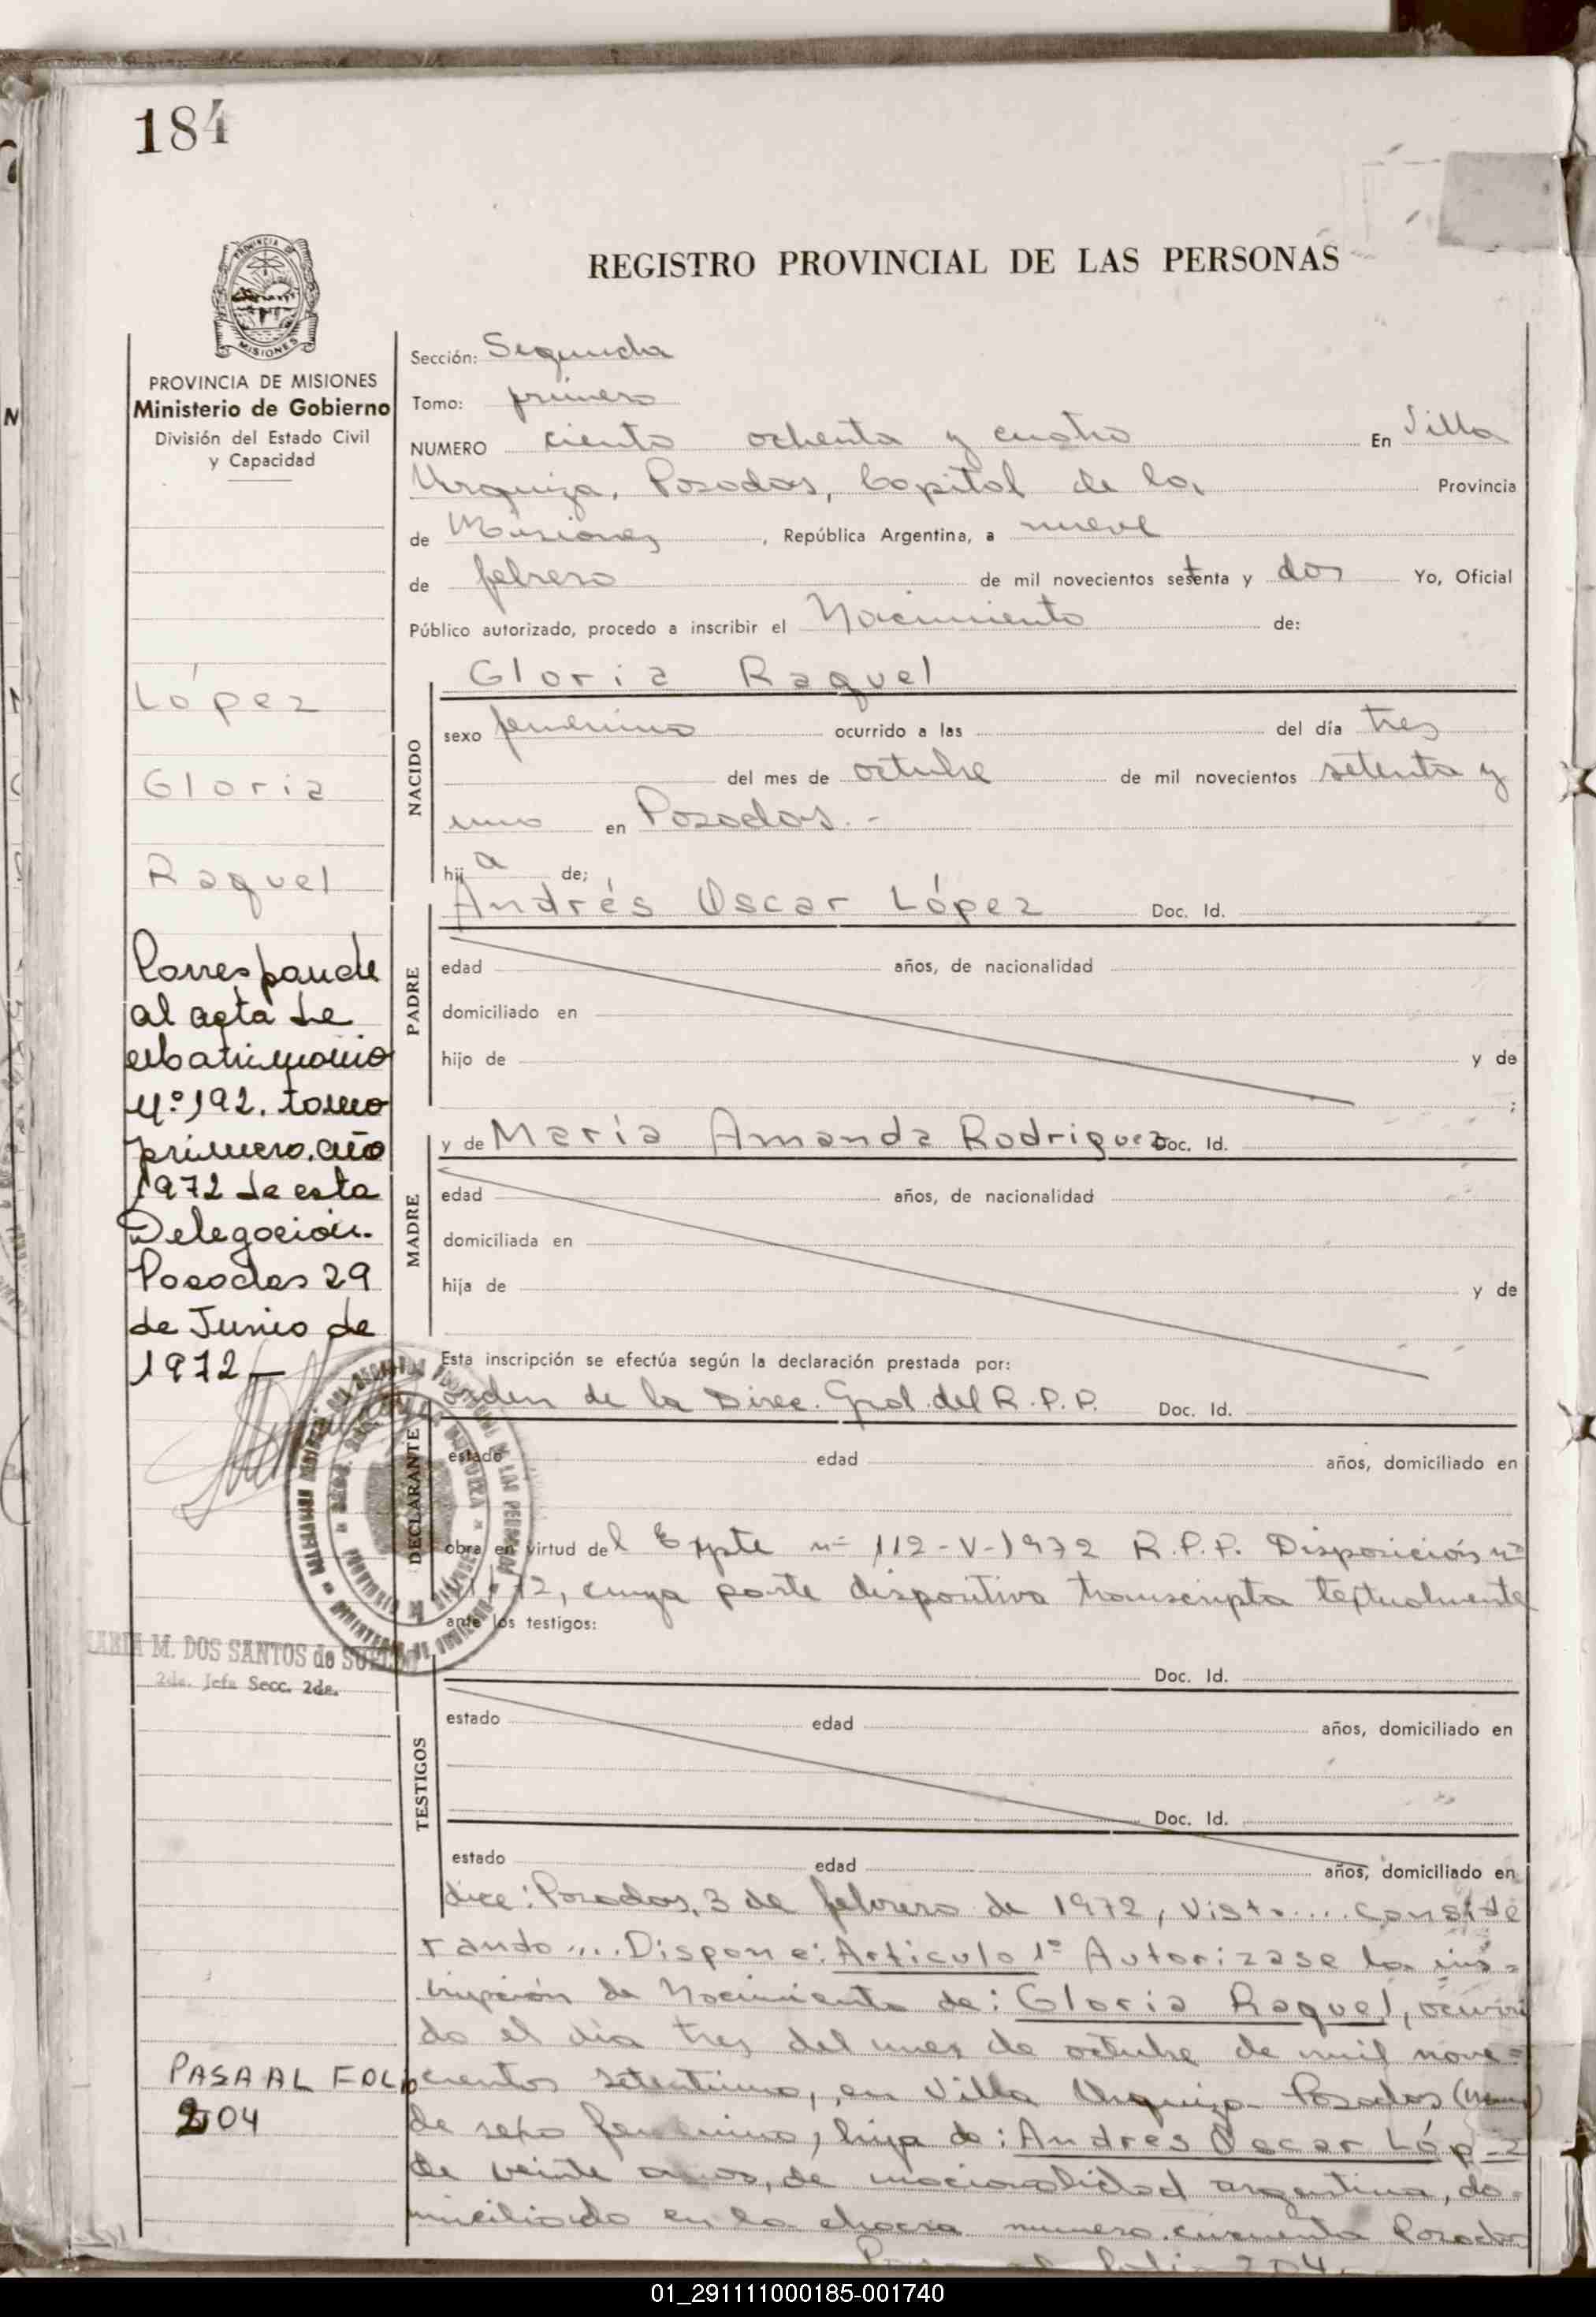 184
REGISTRO PROVINCIAL DE LAS PERSONAS
PROVINCIA DE
MISIONES
PROVINCIA DE MISIONES
Ministerio de Gobierno
División del Estado Civil
y Capacidad
López
Gloria
Raquel
Corresponde
al acta de
Matrimonio
Nº 192. tomo
primero. año
1972 de esta
Delegación.
Posadas 29
de Junio de
1972—
MARIA M. DOS SANTOS de
2da. Jefa Secc. 2da.
PASA AL FOLIO
204
Sección: Segunda
Tomo: primero
NUMERO ciento ochenta y cuatro En Villa
Urquiza, Posadas, Capital de la Provincia
de Misiones, República Argentina, a nueve
de febrero de mil novecientos setenta y dos Yo, Oficial
Público autorizado, procedo a inscribir el Nacimiento de:
NACIDO
Gloria Raquel
sexo femenino ocurrido a las del día tres
del mes de octubre de mil novecientos setenta y
uno en Posadas.-
hija de;
PADRE
Andrés Oscar López Doc. Id.
edad años, de nacionalidad
domiciliado en
hijo de y de
;
MADRE
y de María Amanda Rodriguez Doc. Id.
edad años, de nacionalidad
domiciliada en
hija de y de
Esta inscripción se efectúa según la declaración prestada por:
DECLARANTE
orden de la Direc. Gral. del R.P.P. Doc. Id.
estado edad años, domiciliado en
obra en virtud del Expte nº 112-V-1972 R.P.P. Disposición nº
72, cuya parte dispositiva transcripta textualmente
ante los testigos:
TESTIGOS
Doc. Id.
estado edad años, domiciliado en
Doc. Id.
estado edad años, domiciliado en
dice: Posadas, 3 de febrero de 1972, Visto.... Conside
rando.... Dispone: Articulo 1º Autorizase la ins=
cripción de Nacimiento de: Gloria Raquel, ocurri
do el día tres del mes de octubre de mil nove=
cientos setentiuno, en Villa Urquiza Posadas
de sexo femenino, hija de: Andres Oscar López
de veinte años, de nacionalidad argentina, do=
miciliado en la chacra numero cincuenta Posadas
Pasa al folio 204.
01_291111000185-001740